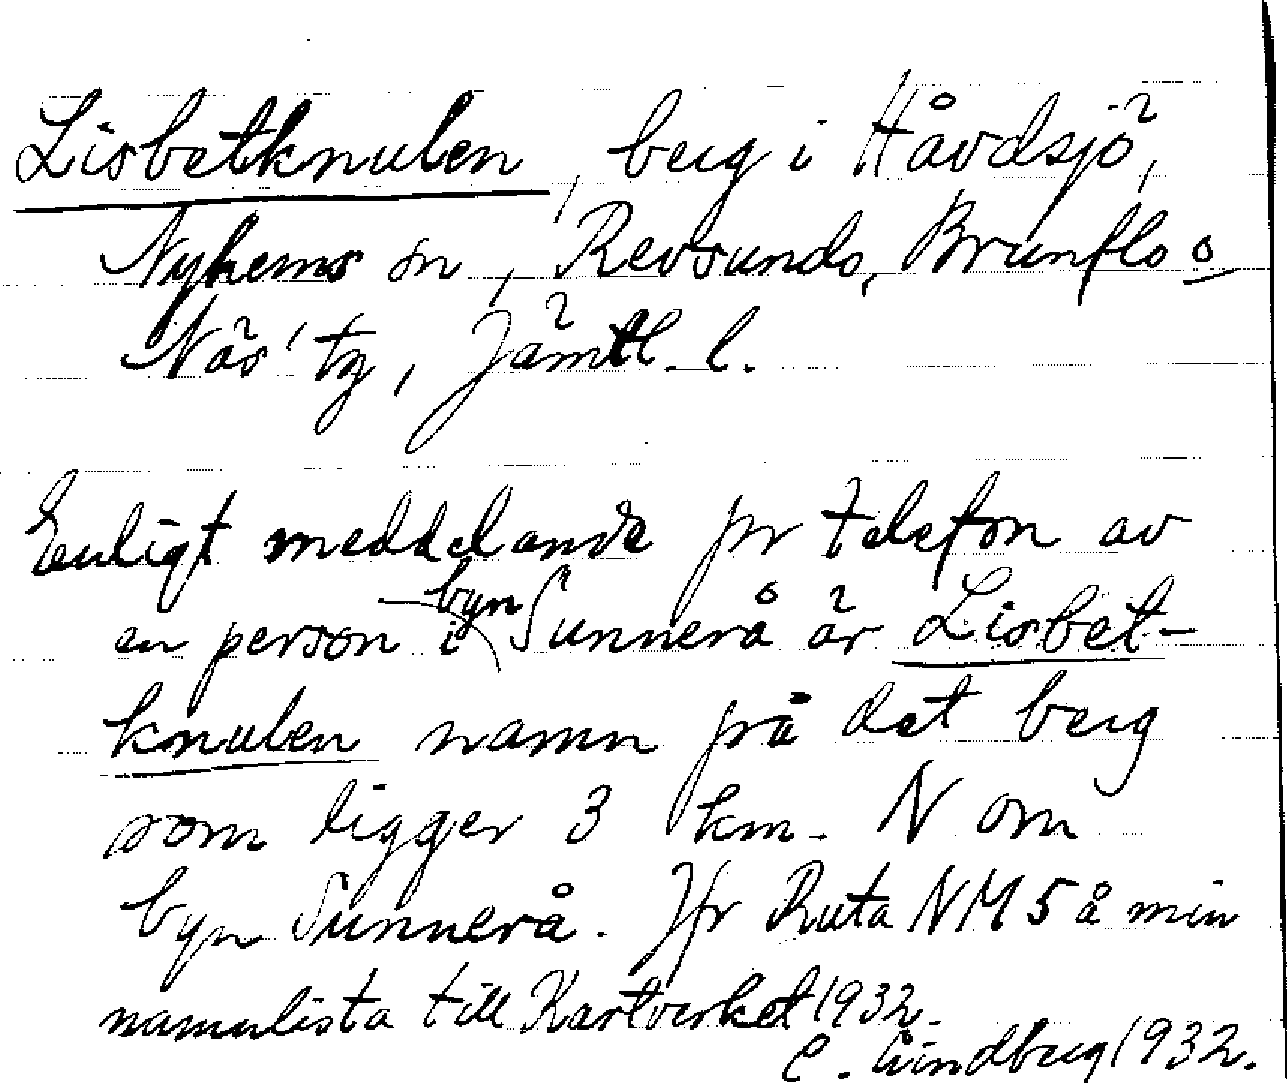 Lisbetknulen, berg i Håvdsjö,
Nyhems sn, Revsunds, Brunflo o
Näs' tg, Jämtl. l.
Enligt meddelande pr telefon av
en person i byn Sunnerå är Lisbet-
knulen namn på det berg
som ligger 3 km. N om
byn Sunnerå. Jfr Ruta NM5 å min
namnlista till Kartverket 1932.
C. Lindberg 1932.